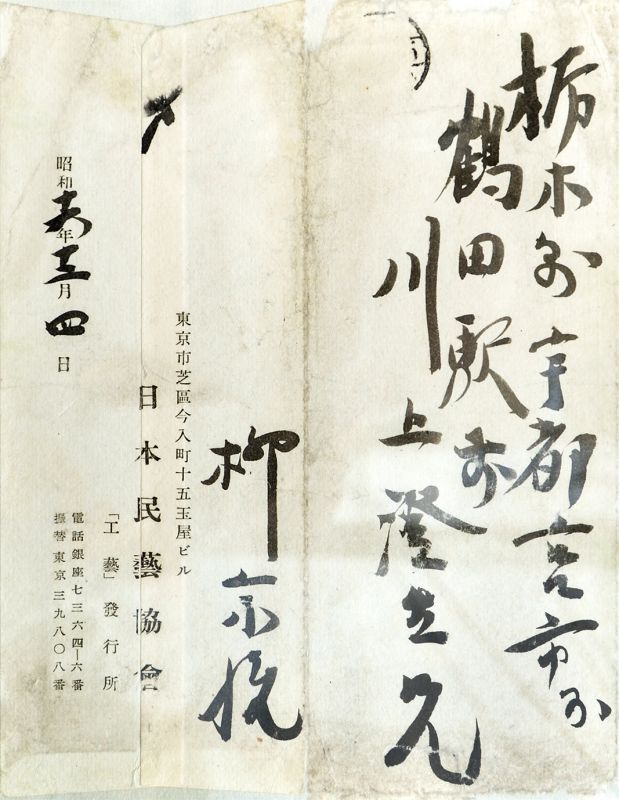 栃木縣宇都宮市外
鶴田駅前
川上澄生兄
柳宗悦
東京市芝區今入町十五玉屋ビル
日本民藝協會
「工藝」發行所
電話銀座七三六四―六番
振替東京三九八〇八番
昭和十六年十二月四日
〆